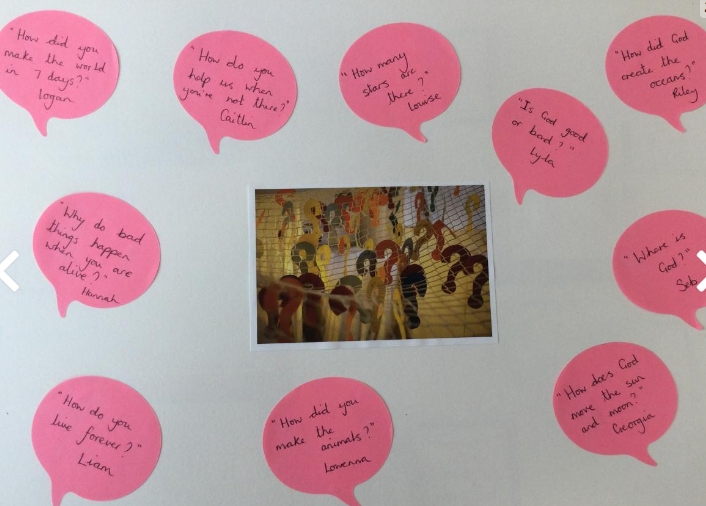 "How did you
make the world
in 7 days?"
Logan
"How do you
help us when
you're not there?"
Caitlin
"How many
stars are
there?"
Louise
"Is God good
or bad?"
Lyla
"How did God
create the
oceans?"
Riley
"Why do bad
things happen
when you are
alive?"
Hannah
"Where is
God?"
Seb
"How do you
live forever?"
Liam
"How did you
make the
animals?"
Lowenna
"How does God
move the sun
and moon?"
Georgia